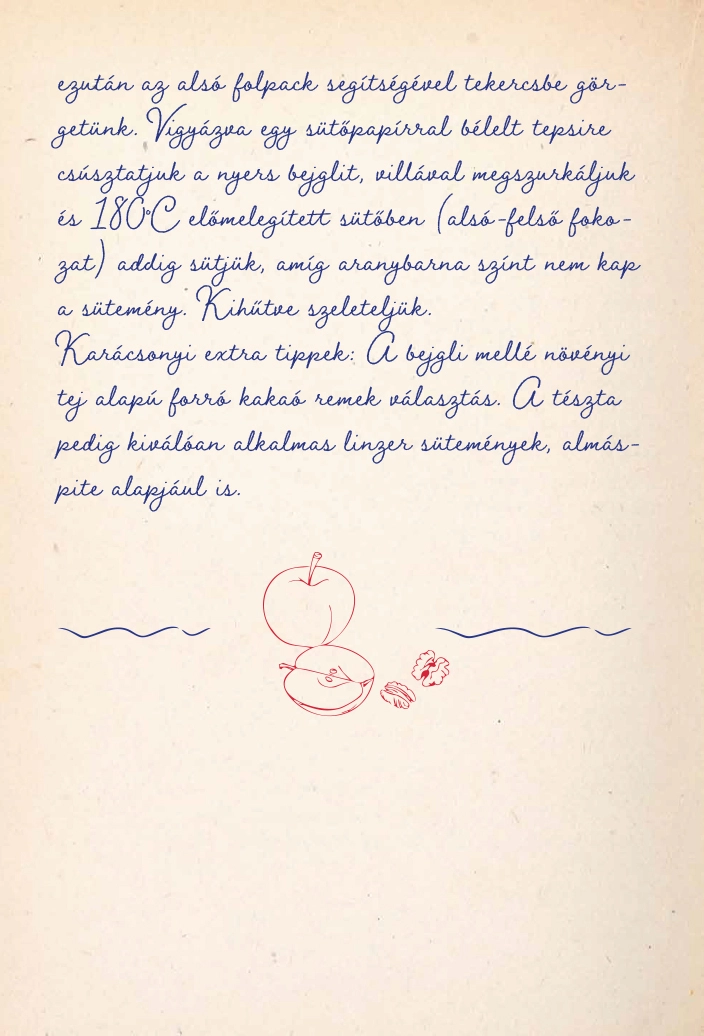 ezután az alsó folpack segítségével tekercsbe gör-
getünk. Vigyázva egy sütőpapírral bélelt tepsire
csúsztatjuk a nyers bejglit, villával megszurkáljuk
és 180°C előmelegített sütőben (alsó-felső foko-
zat) addig sütjük, amíg aranybarna színt nem kap
a sütemény. Kihűtve szeleteljük.
Karácsonyi extra tippek: A bejgli mellé növényi
tej alapú forró kakaó remek választás. A tészta
pedig kiválóan alkalmas linzer sütemények, almás-
pite alapjául is.